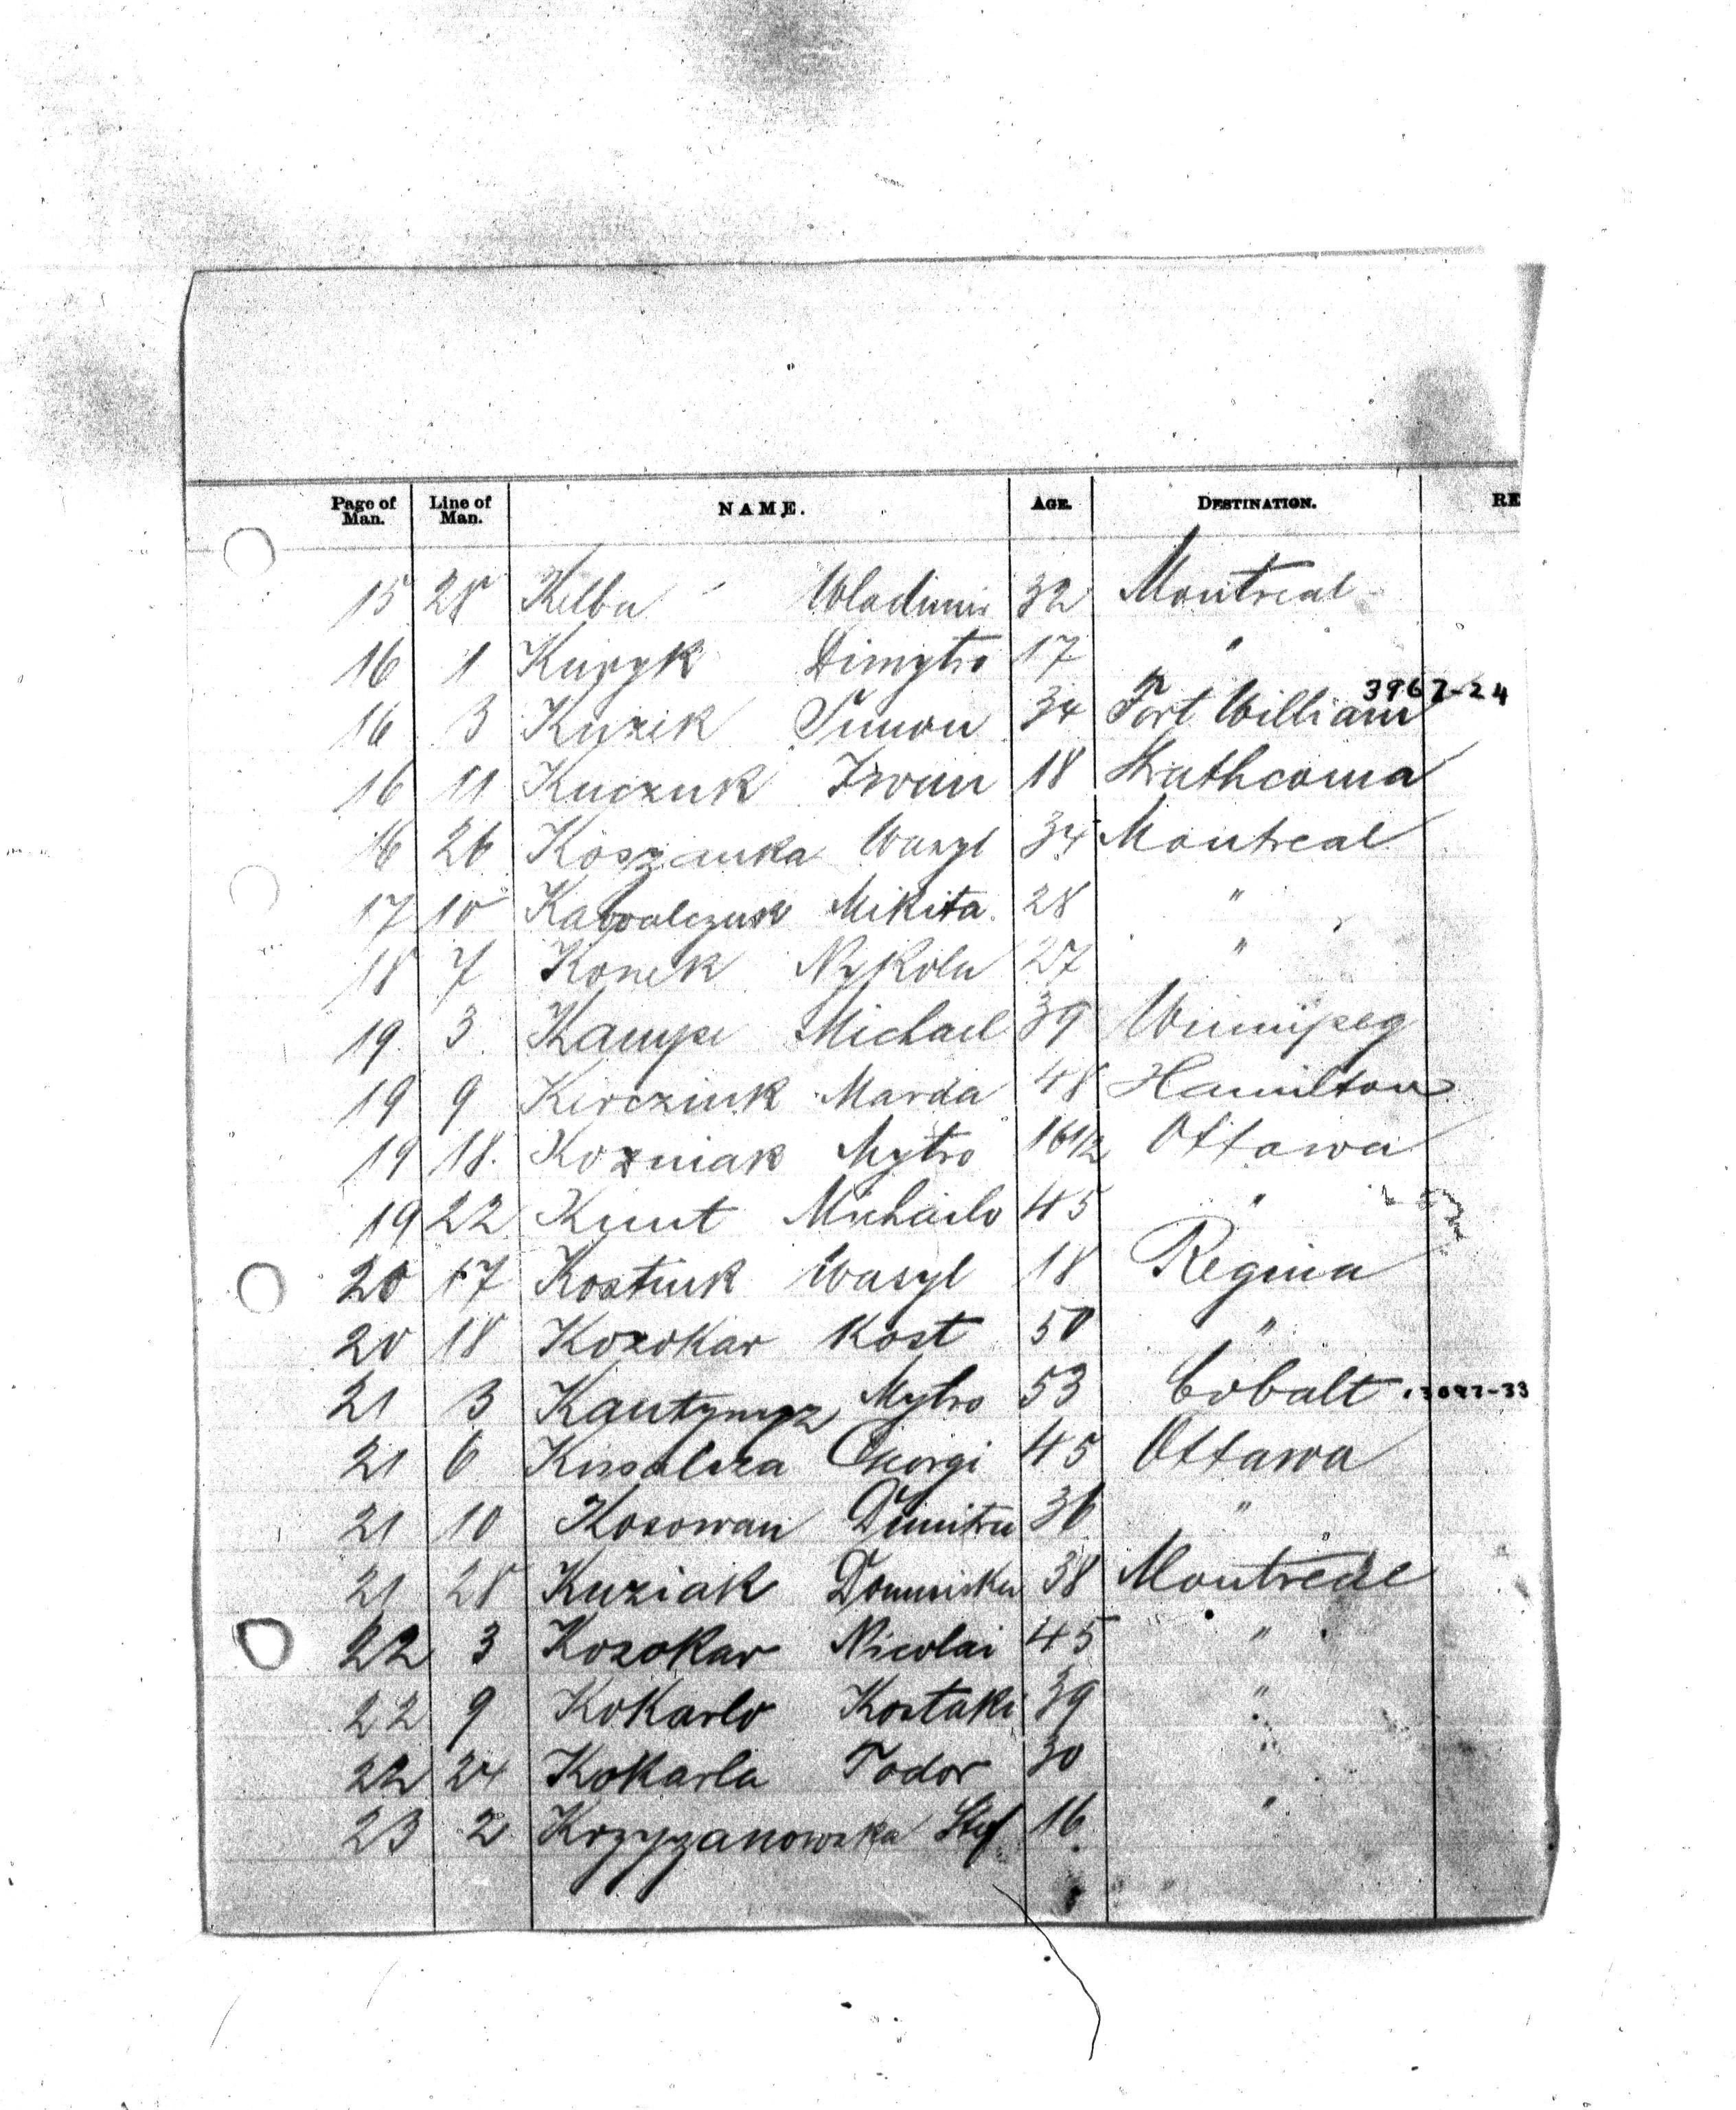 Page of Man. Line of Man. NAME. AGE. DESTINATION. RE
15 28 Kelba Wladimir 32 Montreal
16 1 Kupyk Dimytro 17 "
3967-24
16 3 Kyzik Simon 34 Fort William
16 11 Kuczuk Iwan 18 Strathcona
16 26 Koszanka Wasyl 34 Montreal
17 10 Kawalczuk Mikita 28 "
18 7 Konek Nykola 27 "
19 3 Michael 39 Winnipeg
19 9 Kircziuk Marda 48 Hamilton
19 18. Kozniak Mytro 16 1/2 Ottawa
19 22 Michailo 45 "
20 17 Kostiuk Wasyl 18 Regina
20 18 Kozokar Kost 50 "
21 3 Mytro 53 Cobalt
21 6 Georgi 45 Ottawa
21 10 Kosowan Dimitru 36 "
21 28 Kuziak 38 Montreal
22 3 Kozokar Nicolai 45 "
22 9 Kokarlo Kostaki 39 "
22 24 Kokarla Todor 30 "
23 2 Krzyzanowska Stef 16 "